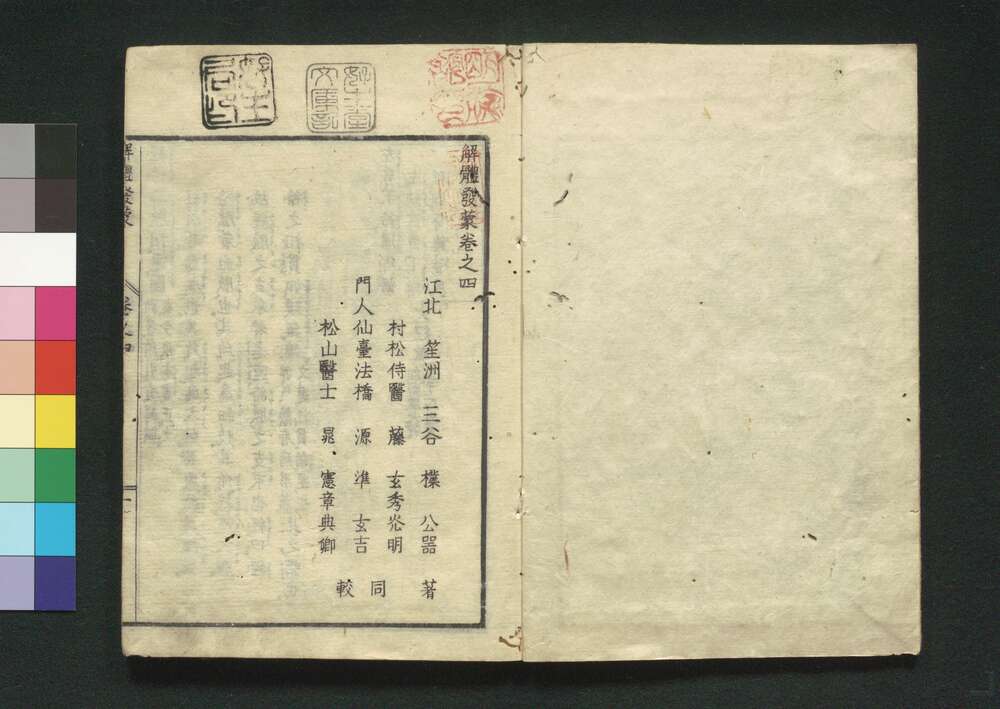 解體發蒙卷之四
江北 笙洲 三谷 樸 公器 著
村松侍醫 藤 玄秀炎明
門人仙臺法橋 源 準 玄吉 同
松山醫士 晁 憲章典卿 較
解體發蒙 卷之四 一